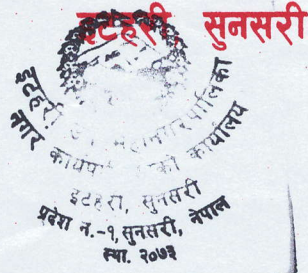 इटहरी, सुनसरी
इटहरी उप महानगरपालिका
नगर कार्यपालिकाको कार्यालय
इटहरी, सुनसरी
प्रदेश नं.-१, सुनसरी, नेपाल
स्था. २०७३